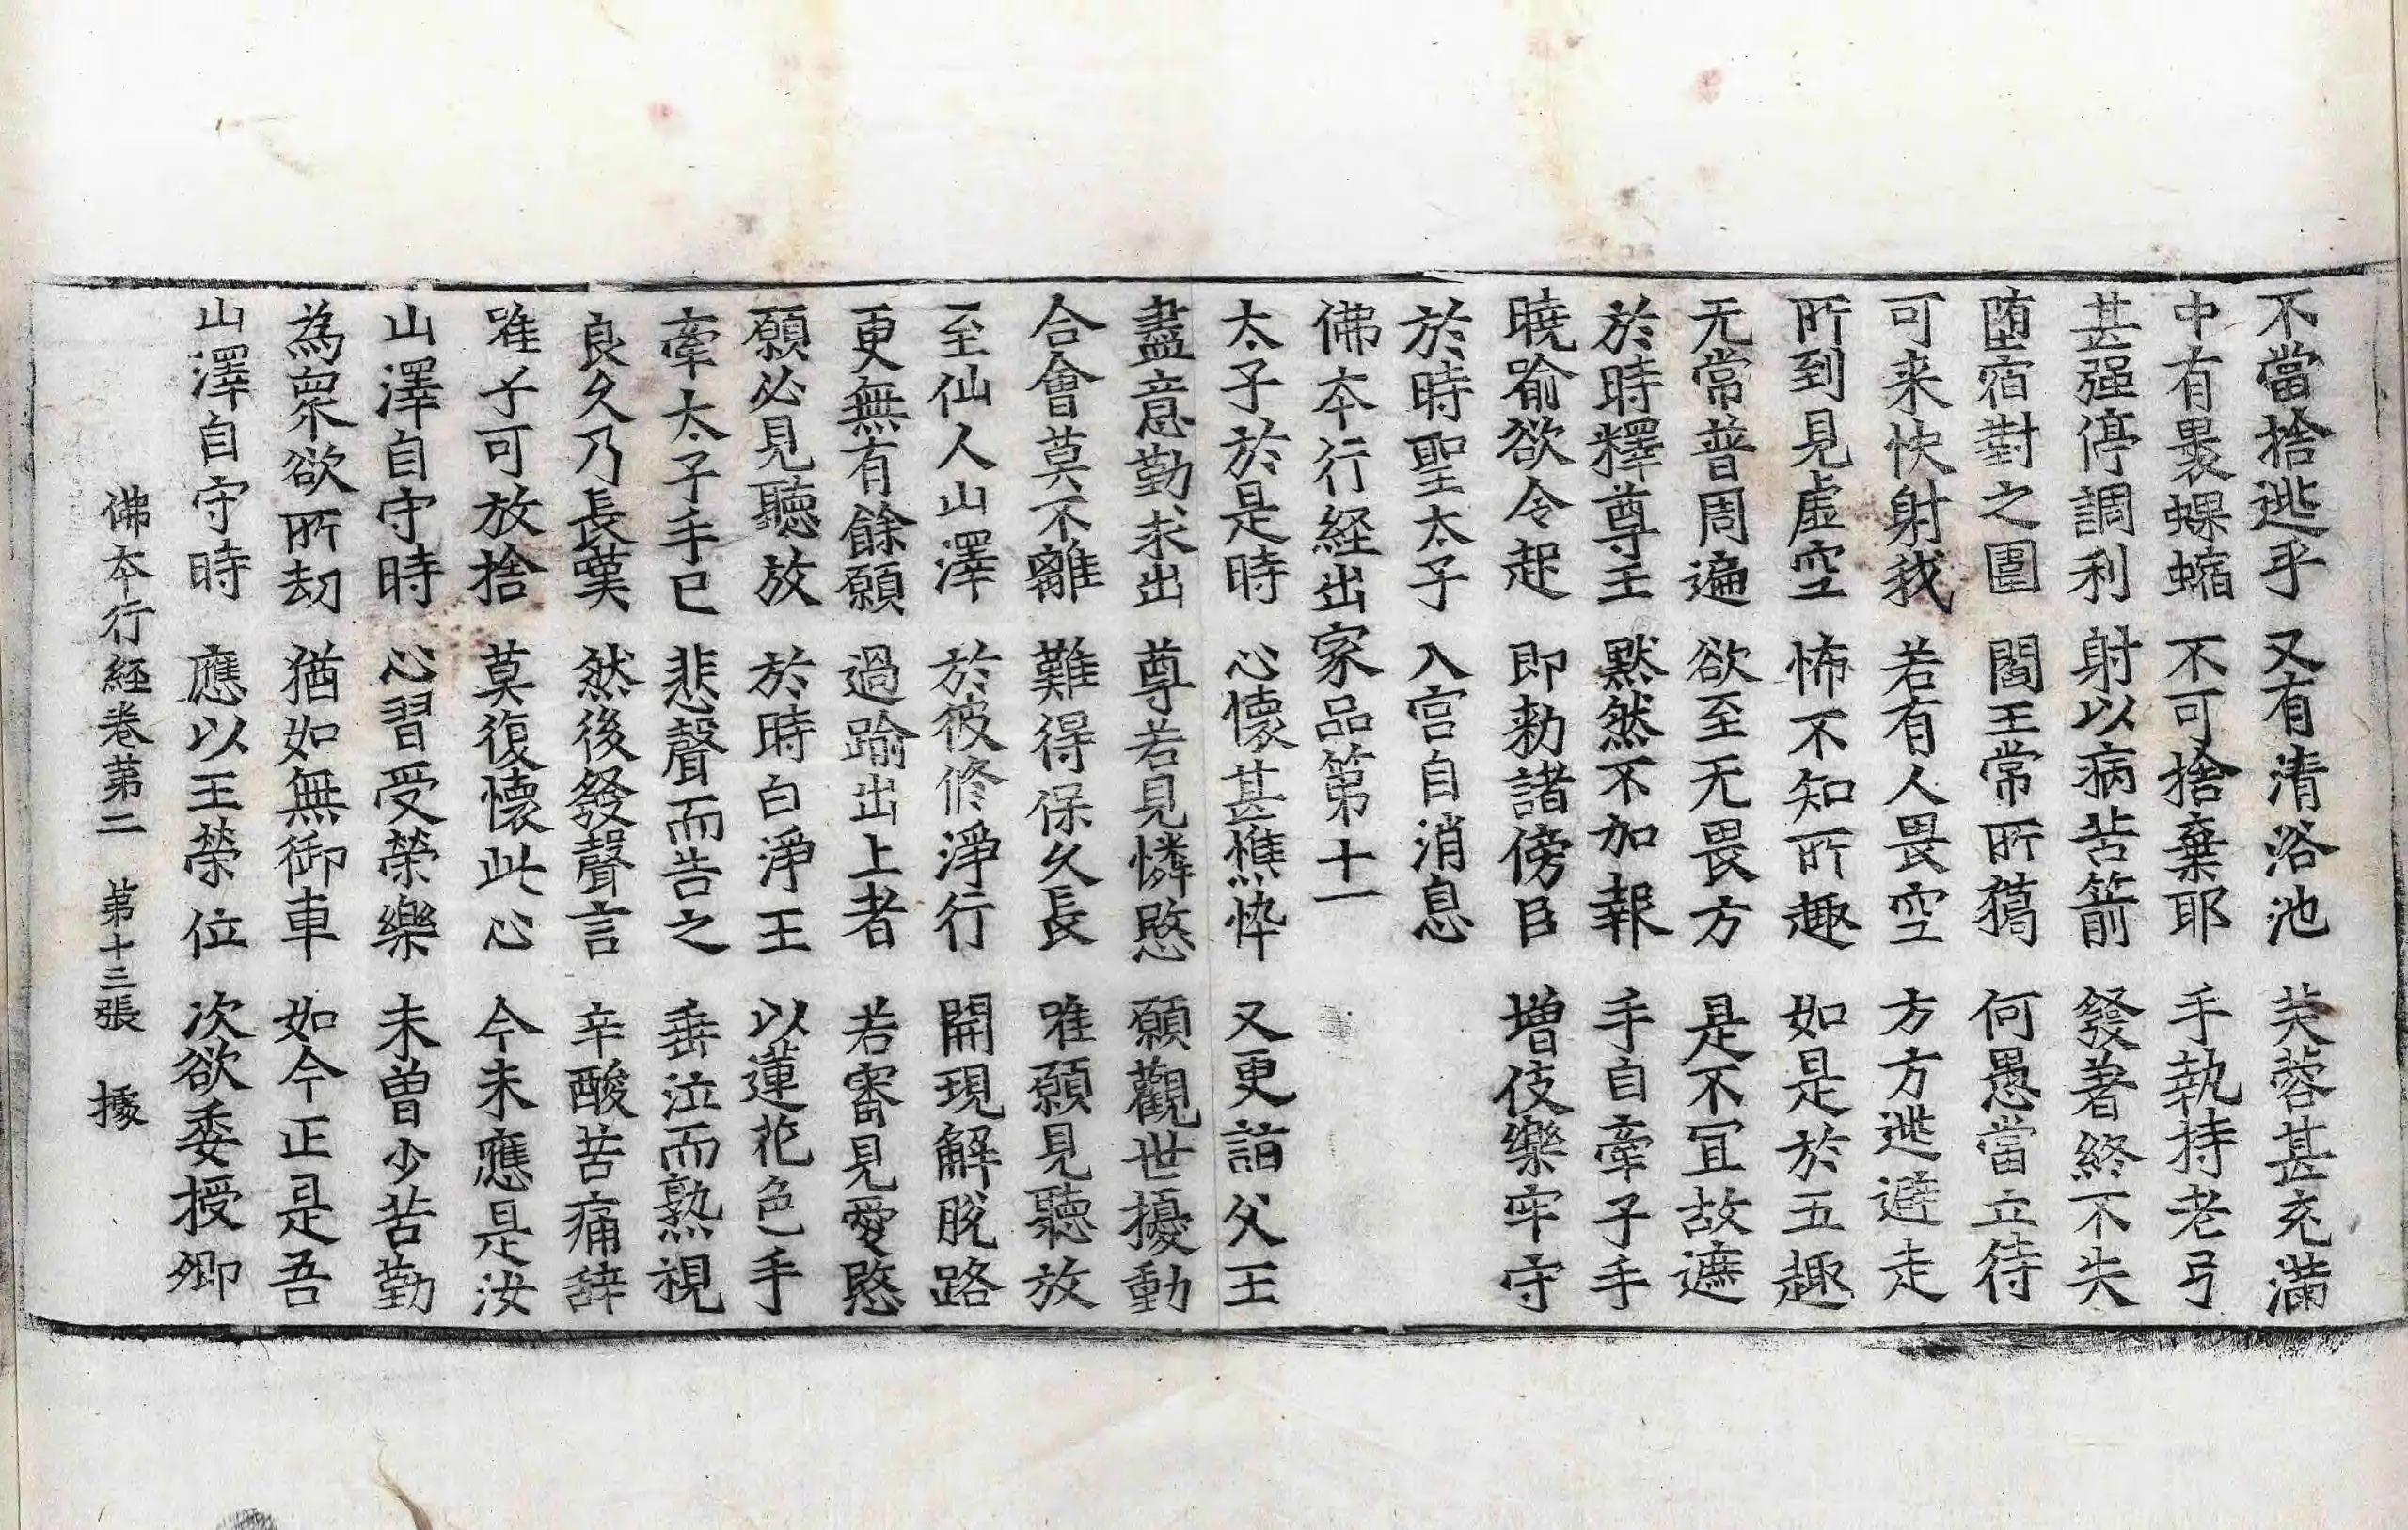 不當捨逃乎 又有清浴池 芙蓉甚充滿
中有褁螺蝫 不可捨棄耶 手執持老弓
甚强停調利 射以病苦箭 發著終不失
堕宿對之圍 閻王常所獦 何愚當立待
可来快射我 若有人畏空 方方逃避走
所到見虛空 怖不知所趣 如是於五趣
无常普周遍 欲至无畏方 是不冝故遮
於時釋尊王 黙然不加報 手自牽子手
曉喻欲令起 即勑諸傍臣 增伎樂牢守
於時聖太子 入宫自消息
佛本行経出家品第十一
太子於是時 心懷甚憔悴 又更詣父王
盡意勤求出 尊若見憐愍 願觀世擾動
合會莫不離 難得保久長 唯願見聽放
至仙人山澤 於彼修淨行 開現解脫路
更無有餘願 過踰出上者 若審見愛愍
願必見聽放 於時白淨王 以蓮花色手
牽太子手已 悲聲而告之 垂泣而熟視
良久乃長嘆 然後發聲言 辛酸苦痛辞
唯子可放捨 莫復懷此心 今未應是汝
山澤自守時 心習受榮樂 未曽少苦勤
為衆欲所刧 猶如無御車 如今正是吾
山澤自守時 應以王榮位 次欲委授卿
佛本行経卷第二 第十三張 據